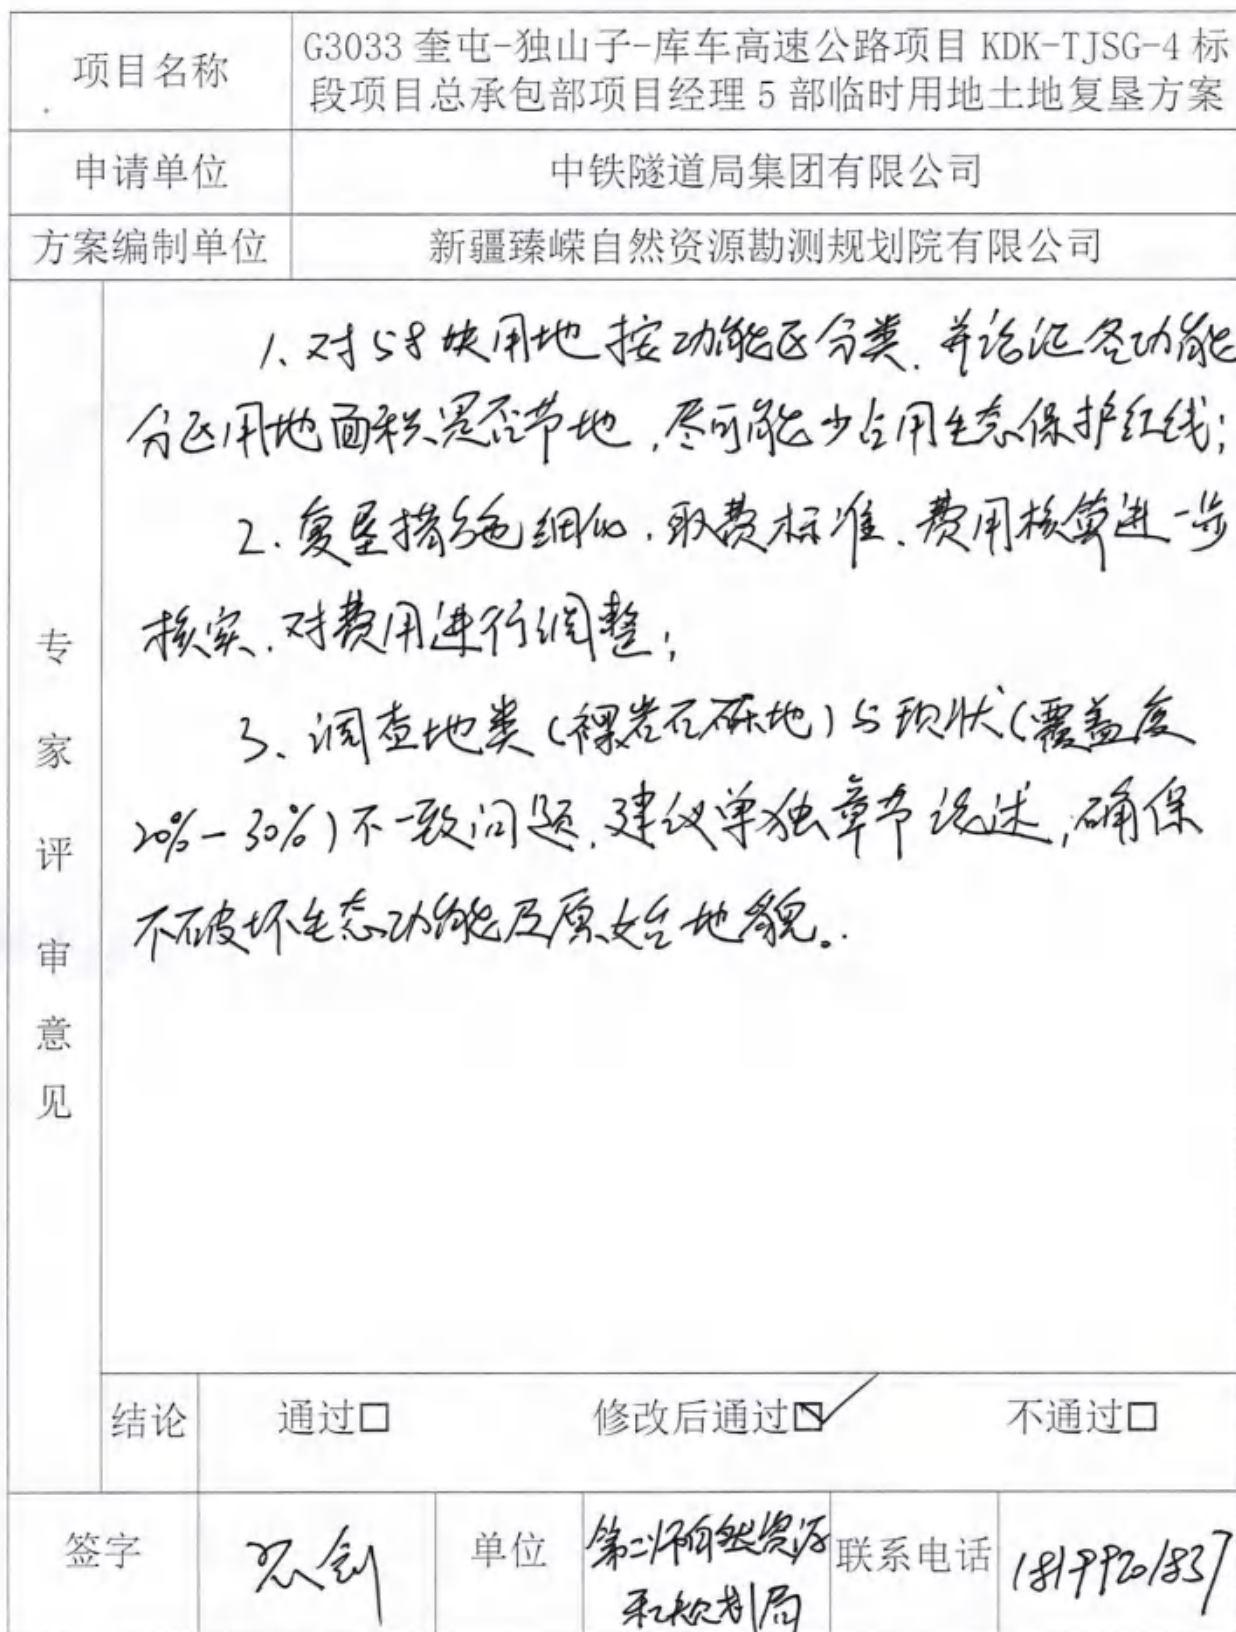 项目名称
G3033 奎屯-独山子-库车高速公路项目 KDK-TJSG-4 标
段项目总承包部项目经理 5 部临时用地土地复垦方案
申请单位
中铁隧道局集团有限公司
方案编制单位
新疆臻嵘自然资源勘测规划院有限公司
专家评审意见
1、对58块用地按功能区分类,并论证各功能
分区用地面积是否节地,尽可能少占用生态保护红线;
2.复垦措施细化,取费标准、费用核算进一步
核实,对费用进行调整;
3、调查地类(裸岩石砾地)与现状(覆盖度
20%-30%)不一致问题,建议单独章节论述,确保
不破坏生态功能及原始地貌。
结论
通过□
修改后通过☑
不通过□
签字
单位
第二师自然资源
和规划局
联系电话
18199201837